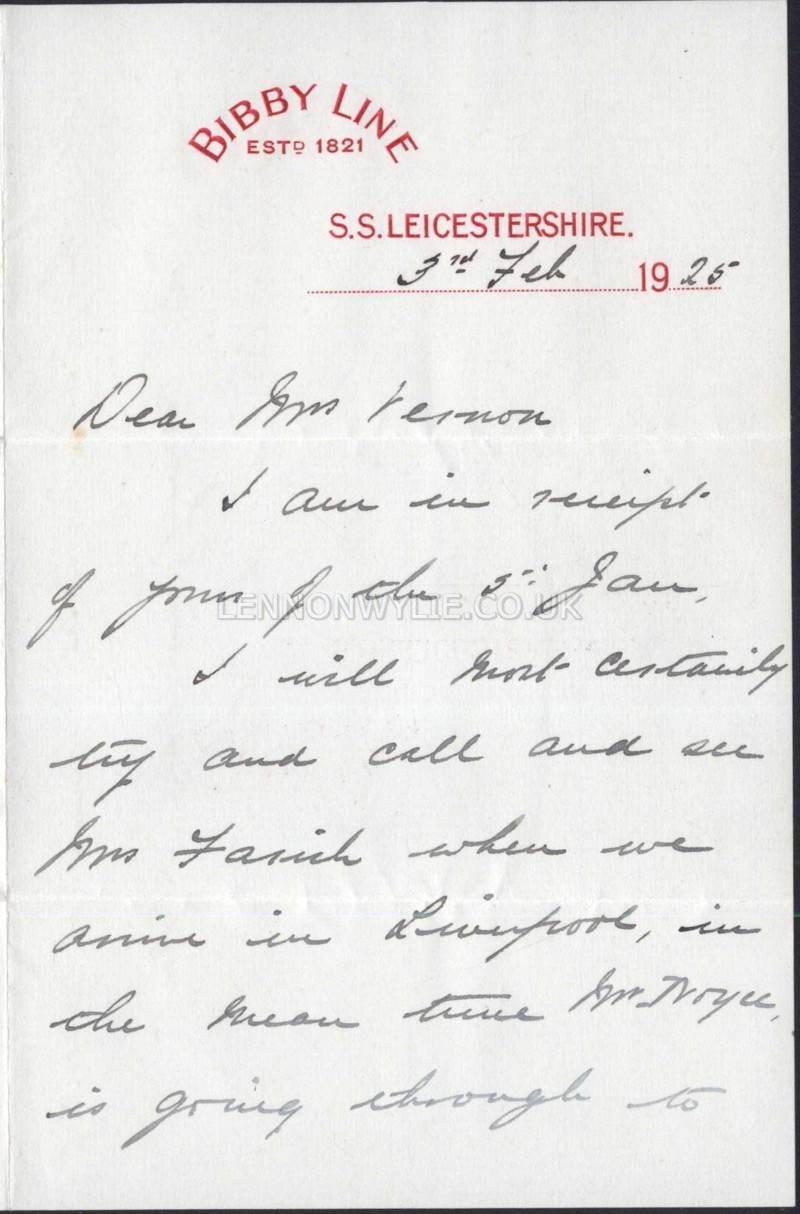 BIBBY LINE
ESTD 1821
S.S. LEICESTERSHIRE.
3rd Feb 1925
Dear Mrs Vernon
I am in receipt
of yours of the 5th Jan,
I will most certainly
try and call and see
Mrs when we
arrive in Liverpool, in
the mean time Mr Noyce,
is going through to
LENNONWYLIE.CO.UK